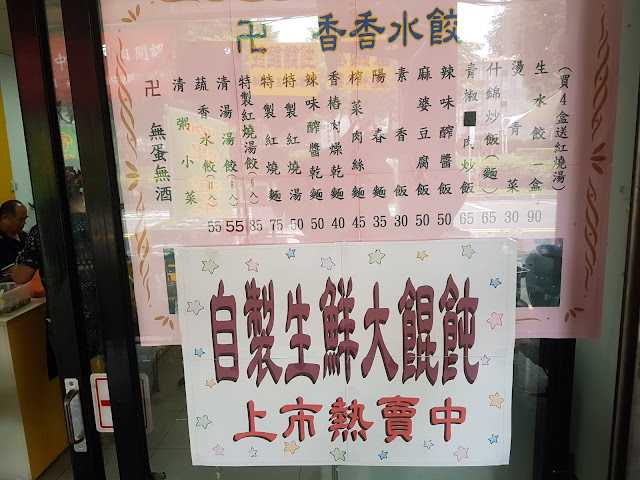 卍 香香水餃
(買4盒送紅燒湯)
生水餃一盒 90
燙青菜 30
什錦炒飯(麵) 65
青椒肉炒飯 65
辣味醡醬飯 50
麻婆豆腐飯 50
素香飯 30
陽春麵 35
榨菜肉絲麵 45
香椿肉燥乾麵 40
辣味醡醬乾麵 50
特製紅燒湯 50
特製紅燒麵 75
特製紅燒湯餃 85
清湯湯餃 55
蔬香水餃 55
清粥小菜
卍 無蛋無酒
自製生鮮大餛飩
上市熱賣中